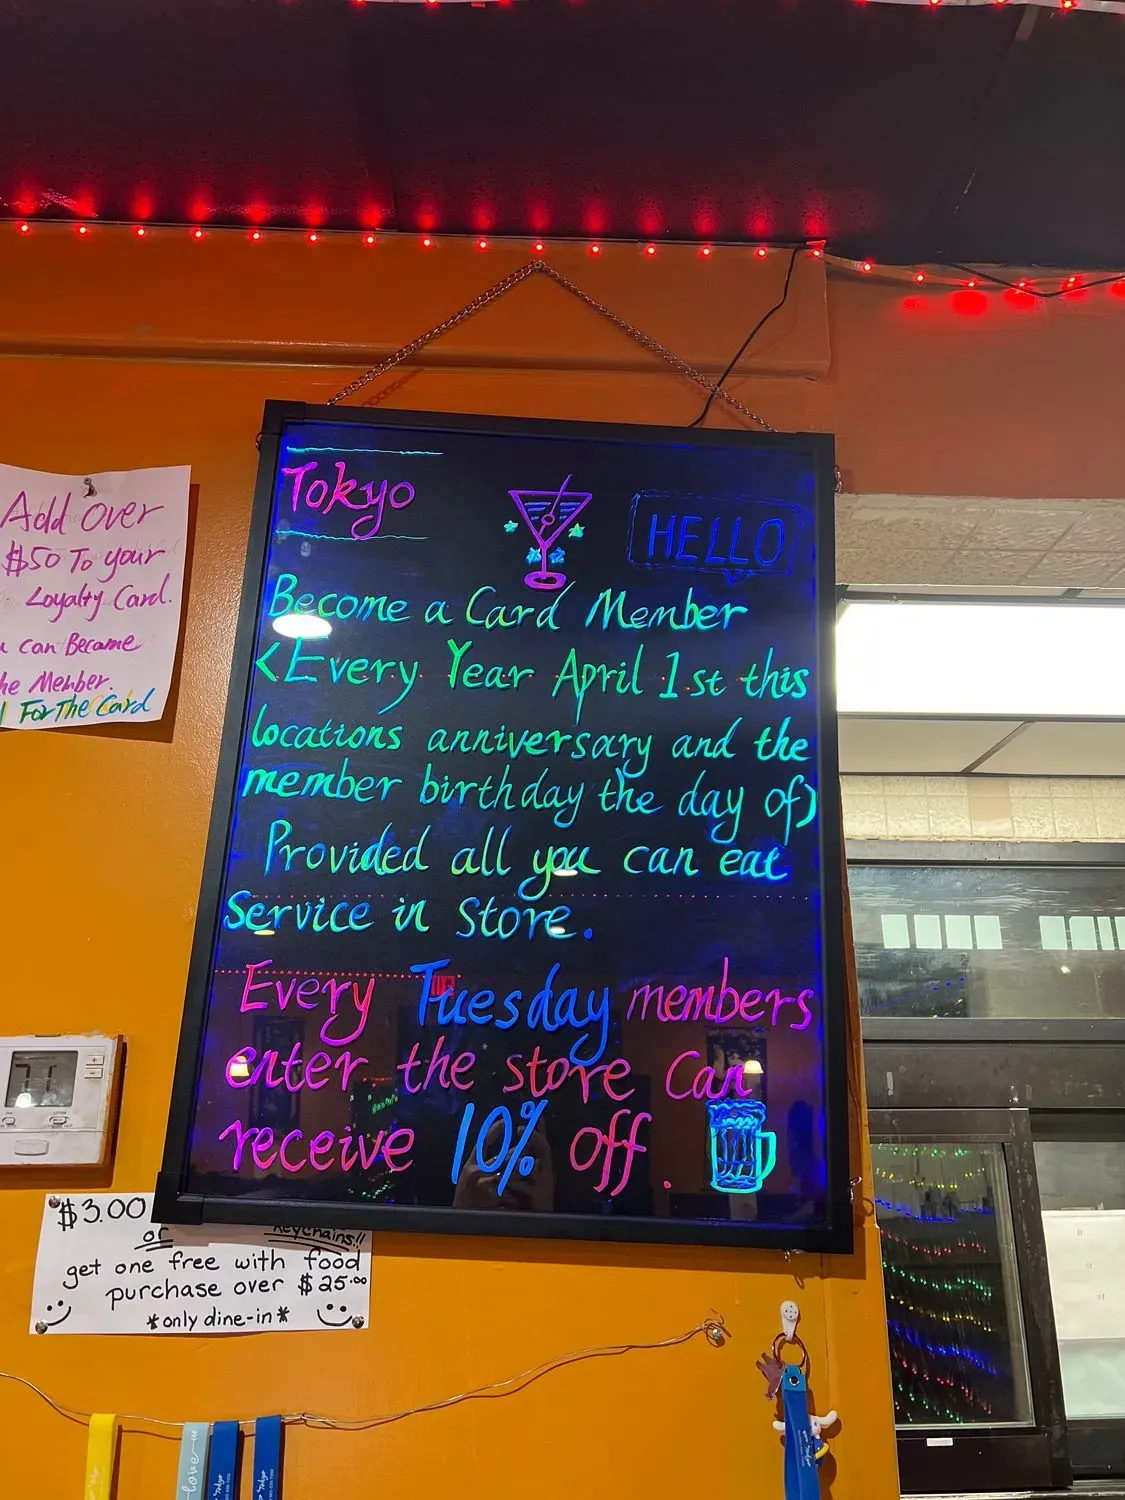 Tokyo
HELLO
Become a Card Member
<Every Year April 1st this
locations anniversary and the
member birthday the day of)
Provided all you can eat
Service in Store.
Every Tuesday members
enter the store Can
receive 10% off.
Add over
$50 To your
Loyalty Card.
can Became
Member.
For The Card
71
$3.00
or
Keychains!!
get one free with food
purchase over $25.00
*only dine-in*
love